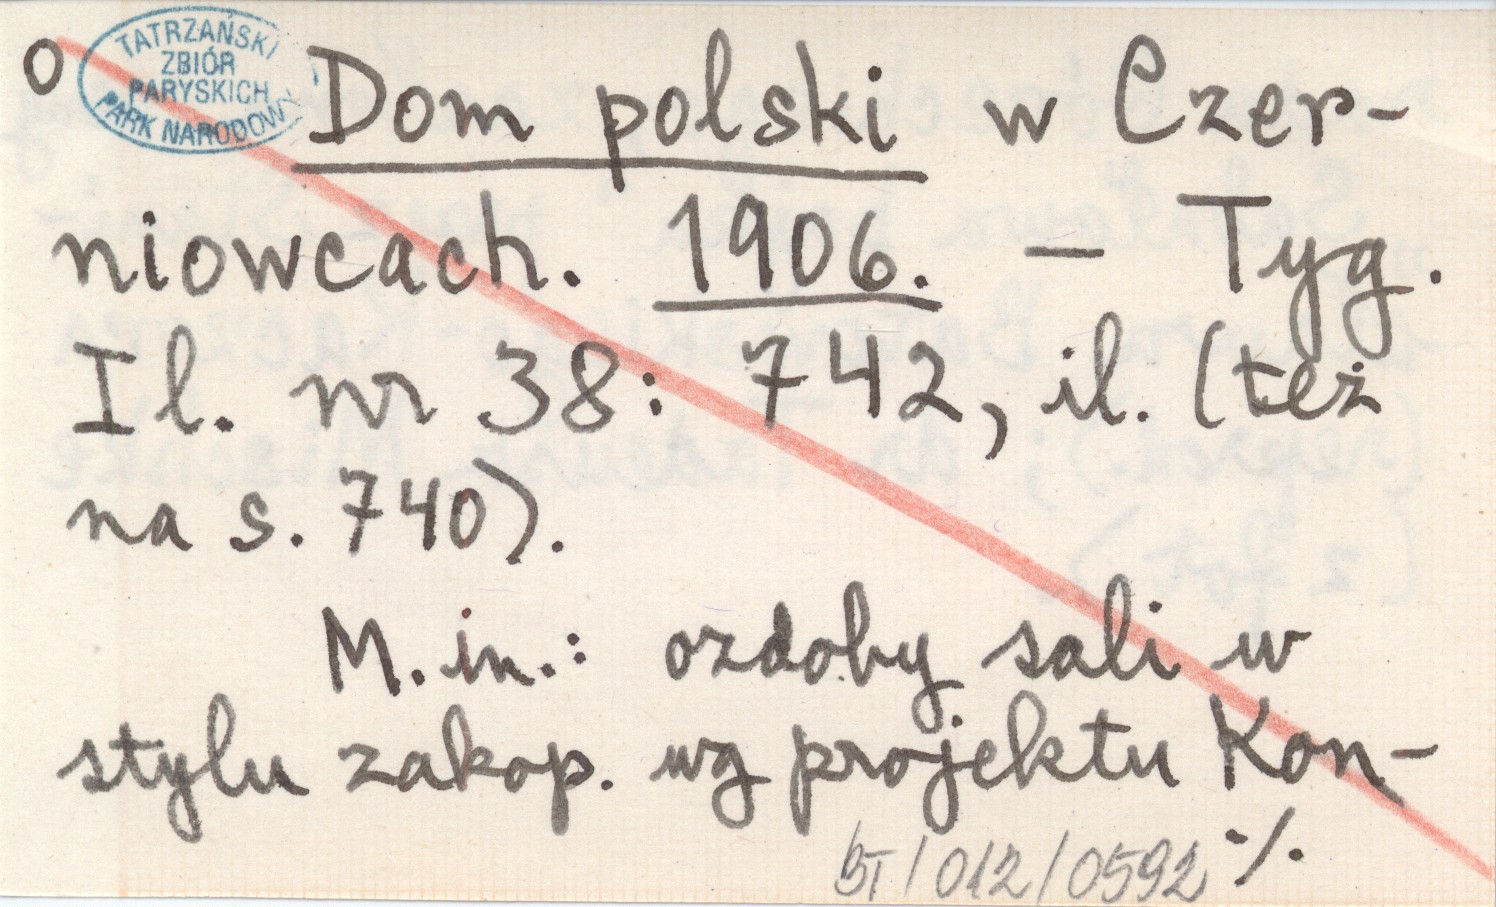 o
TATRZAŃSKI
ZBIÓR
PARYSKICH
PARK NARODOWY
Dom polski w Czer-
niowcach. 1906. – Tyg.
Il. nr 38: 742, il. (też
na s. 740).
M. in.: ozdoby sali w
stylu zakop. wg projektu Kon-
./.
BT/012/0592